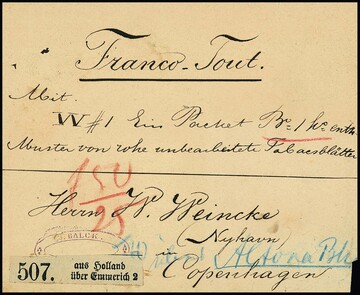 Franco-Tout.
Mit.
W #1 Ein Packet Bo. 1 ko. enth.
Muster von rohe unbearbeitete Tabacsblätter
150
25
Herrn W. Weincke
Nyhavn
Copenhagen
Altona Bhf
507. aus Holland
über Emmerich 2